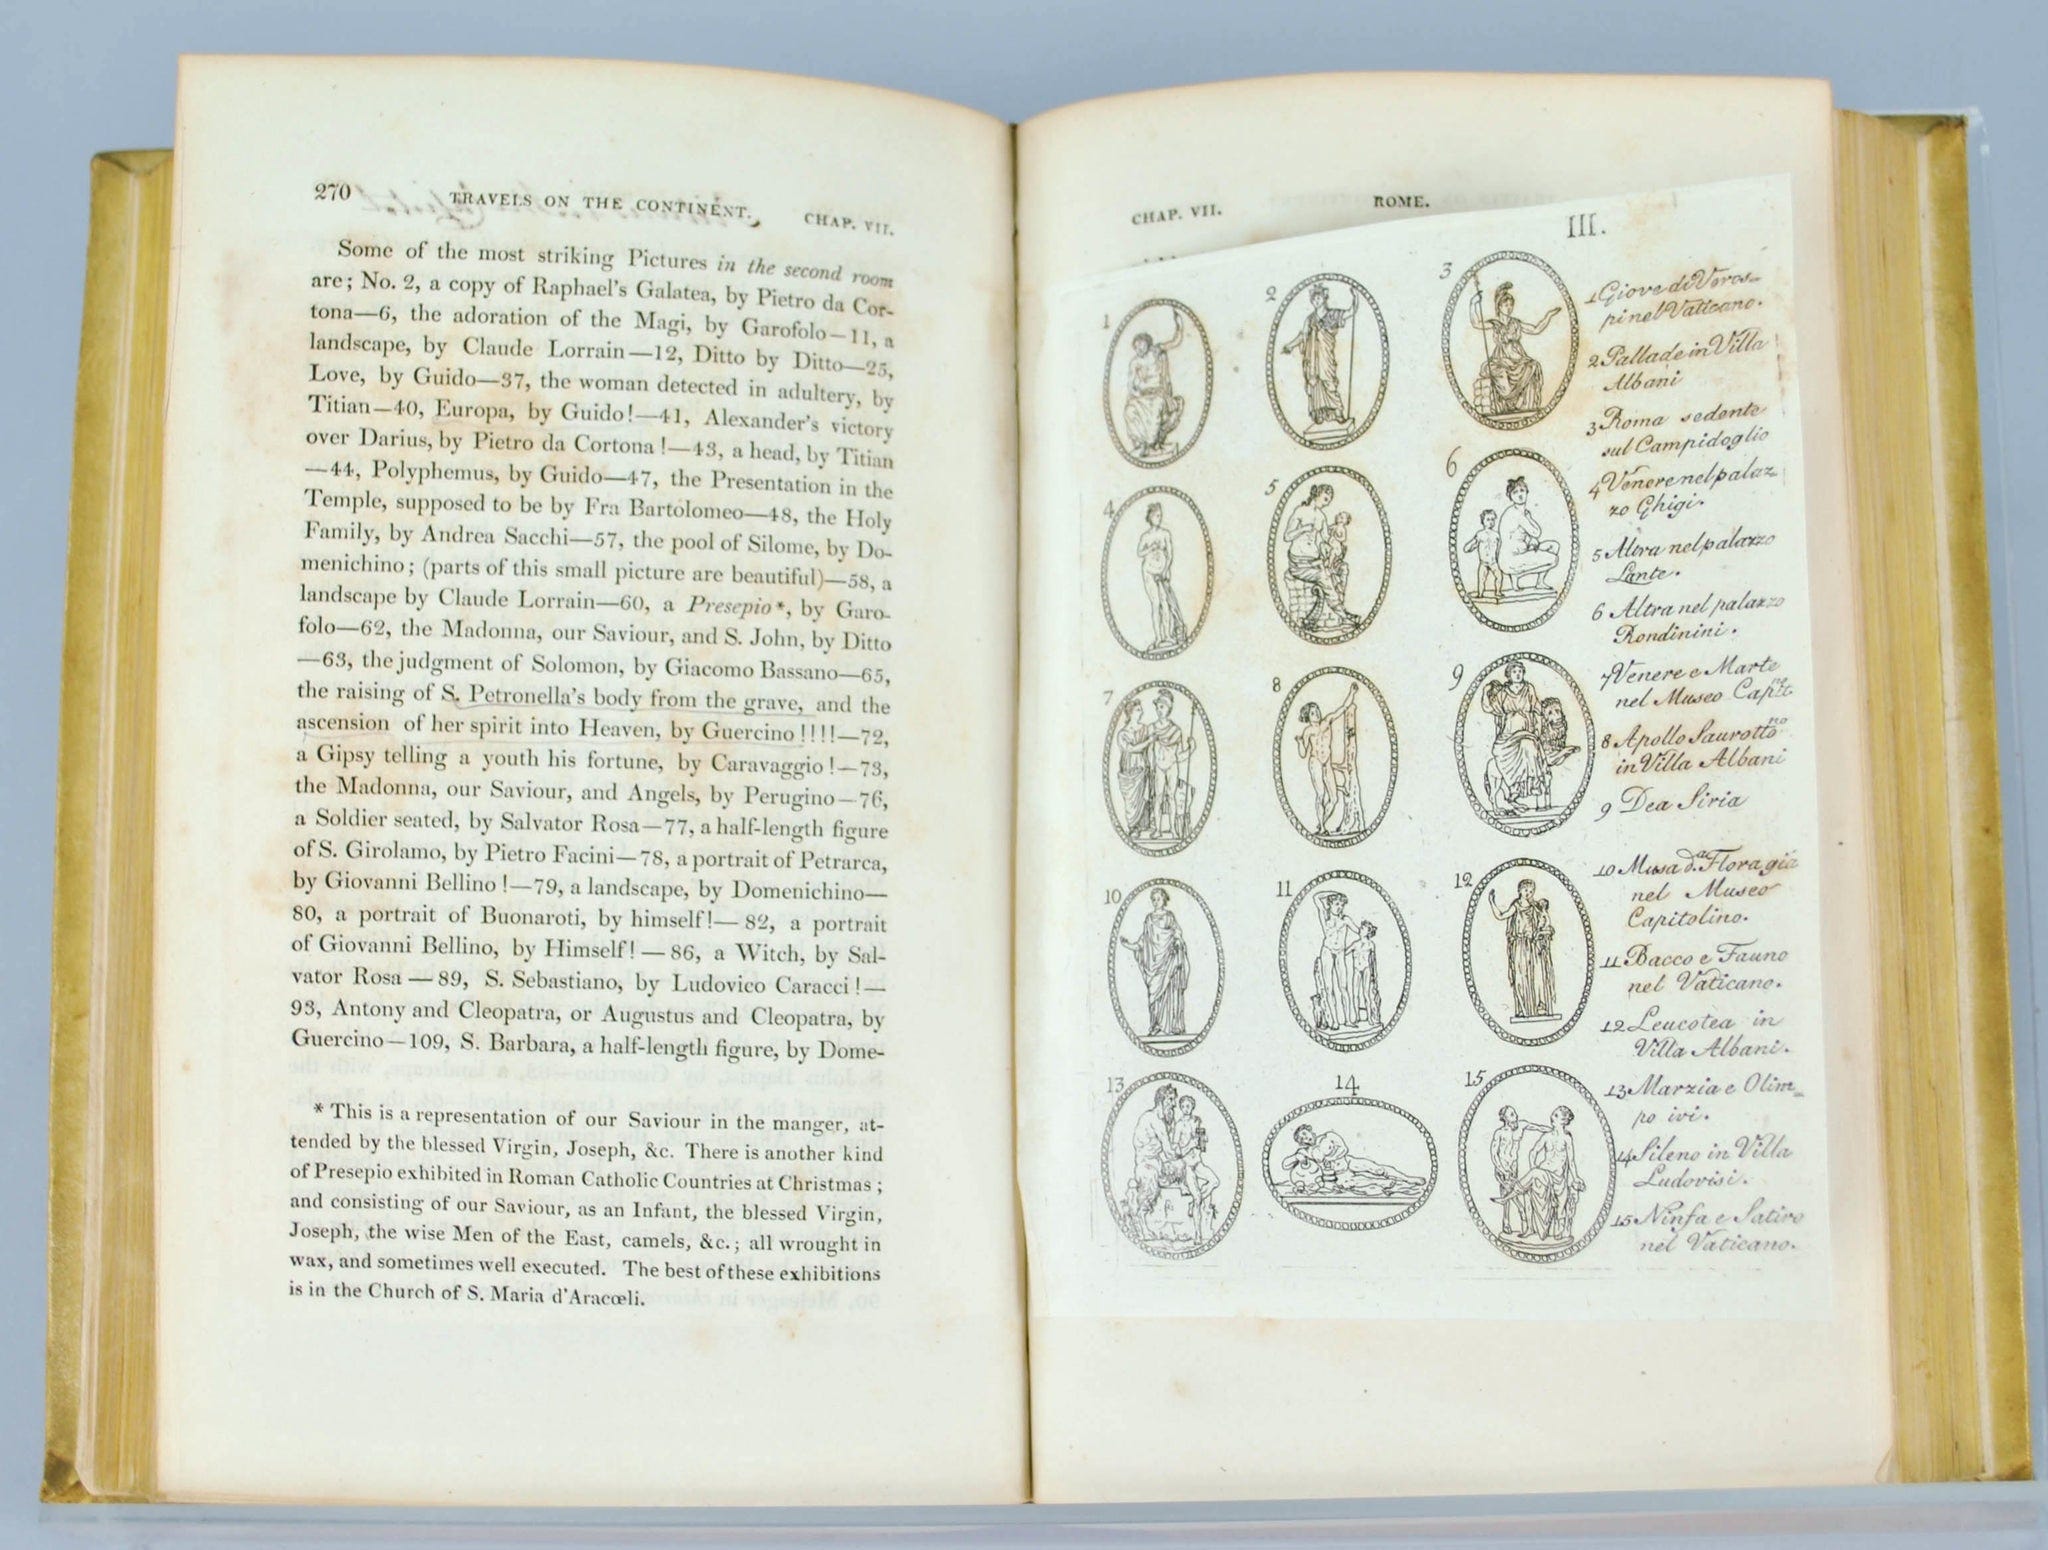 270 TRAVELS ON THE CONTINENT. CHAP. VII.
Some of the most striking Pictures in the second room
are; No. 2, a copy of Raphael's Galatea, by Pietro da Cor-
tona—6, the adoration of the Magi, by Garofolo—11, a
landscape, by Claude Lorrain—12, Ditto by Ditto—25,
Love, by Guido—37, the woman detected in adultery, by
Titian—40, Europa, by Guido!—41, Alexander's victory
over Darius, by Pietro da Cortona!—43, a head, by Titian
—44, Polyphemus, by Guido—47, the Presentation in the
Temple, supposed to be by Fra Bartolomeo—48, the Holy
Family, by Andrea Sacchi—57, the pool of Silome, by Do-
menichino; (parts of this small picture are beautiful)—58, a
landscape by Claude Lorrain—60, a Presepio*, by Garo-
folo—62, the Madonna, our Saviour, and S. John, by Ditto
—63, the judgment of Solomon, by Giacomo Bassano—65,
the raising of S. Petronella's body from the grave, and the
ascension of her spirit into Heaven, by Guercino!!!!—72,
a Gipsy telling a youth his fortune, by Caravaggio!—73,
the Madonna, our Saviour, and Angels, by Perugino—76,
a Soldier seated, by Salvator Rosa—77, a half-length figure
of S. Girolamo, by Pietro Facini—78, a portrait of Petrarca,
by Giovanni Bellino!—79, a landscape, by Domenichino—
80, a portrait of Buonaroti, by himself!—82, a portrait
of Giovanni Bellino, by Himself!—86, a Witch, by Sal-
vator Rosa—89, S. Sebastiano, by Ludovico Caracci!—
93, Antony and Cleopatra, or Augustus and Cleopatra, by
Guercino—109, S. Barbara, a half-length figure, by Dome-
* This is a representation of our Saviour in the manger, at-
tended by the blessed Virgin, Joseph, &c. There is another kind
of Presepio exhibited in Roman Catholic Countries at Christmas;
and consisting of our Saviour, as an Infant, the blessed Virgin,
Joseph, the wise Men of the East, camels, &c.; all wrought in
wax, and sometimes well executed. The best of these exhibitions
is in the Church of S. Maria d'Aracœli.
CHAP. VII. ROME.
III.
1 2 3
4 5 6
7 8 9
10 11 12
13 14 15
1 Giove di Veros-
pi nel Vaticano.
2 Pallade in Villa
Albani
3 Roma sedente
sul Campidoglio
4 Venere nel palaz
zo Ghigi.
5 Altra nel palazzo
Lante.
6 Altra nel palazzo
Rondinini.
7 Venere e Marte
nel Museo Capit.no
8 Apollo Saurotto.no
in Villa Albani
9 Dea Siria
10 Musa d.a Flora già
nel Museo
Capitolino.
11 Bacco e Fauno
nel Vaticano.
12 Leucotea in
Villa Albani.
13 Marzia e Olim-
po ivi.
14 Sileno in Villa
Ludovisi.
15 Ninfa e Satiro
nel Vaticano.